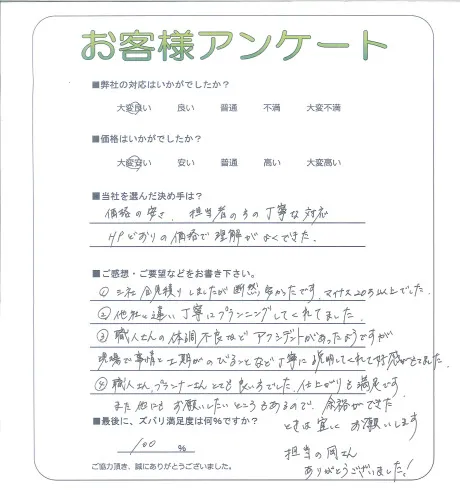 お客様アンケート
■弊社の対応はいかがでしたか?
大変良い 良い 普通 不満 大変不満
■価格はいかがでしたか?
大変安い 安い 普通 高い 大変高い
■当社を選んだ決め手は?
価格の安さ、担当者の方の丁寧な対応
HPどおりの価格で理解がよくできた.
■ご感想・ご要望などをお書き下さい。
① 三社 見積りしましたが断然 安かったです, マイナス20万以上でした.
② 他社と違い丁寧にプランニングしてくれてました.
③ 職人さんの体調不良など アクシデントがあったようですが
現場で事情と工期がのびることなど丁寧に説明してくれて好感がもてました.
④ 職人さん, プランナーさんとても良い方でした, 仕上がりも満足です
また 他にも お願いしたいところもあるので, 余裕ができた
ときは宜しく お願いします
■最後に、ズバリ満足度は何%ですか?
100 %
担当の岡さん
ありがとうございました!
ご協力頂き、誠にありがとうございました。